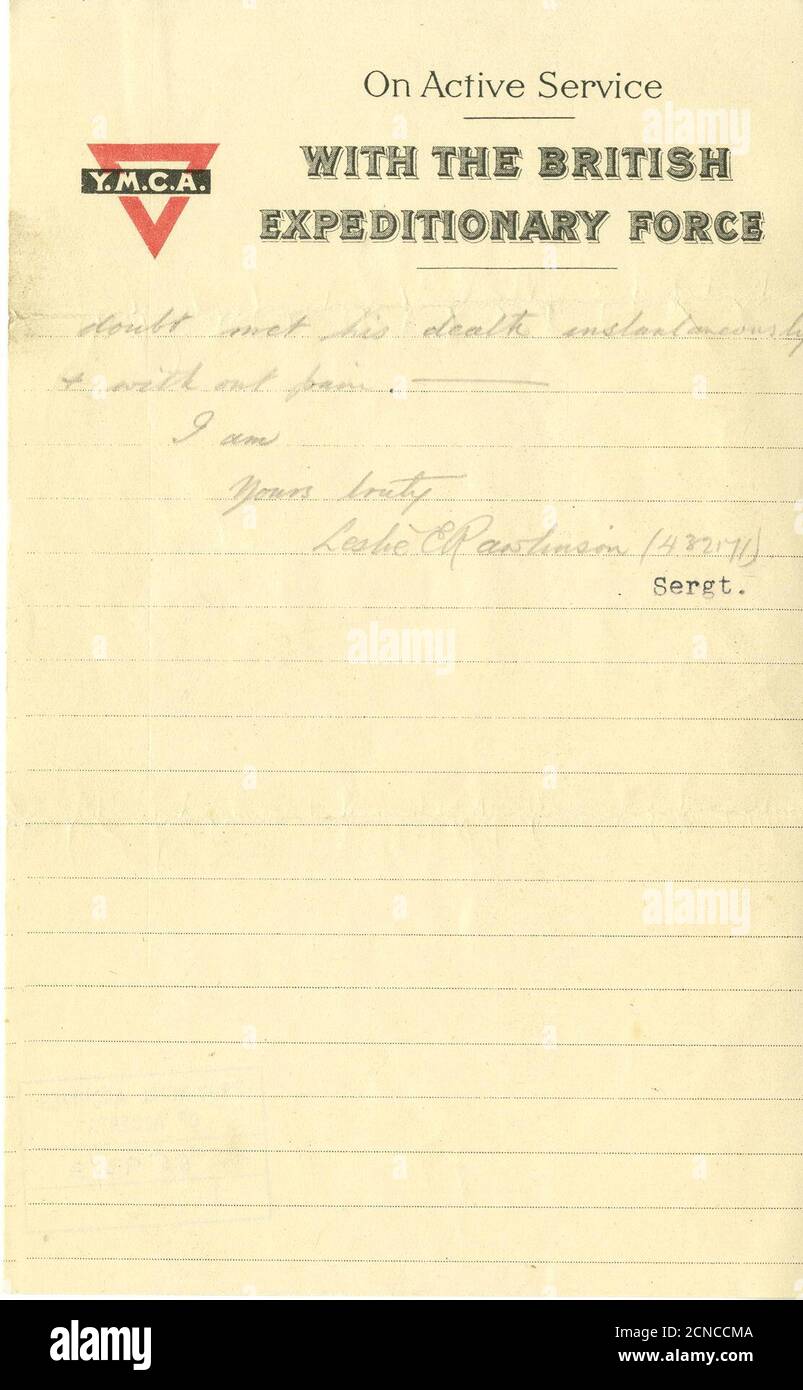 On Active Service
Y.M.C.A.
WITH THE BRITISH
EXPEDITIONARY FORCE
doubt met his death instantaneously
& with out pain.
I am
Yours truly
Leslie E Rawlinson (432171)
Sergt.
alamy
alamy
alamy
alamy
Image ID: 2CNCCMA
www.alamy.com